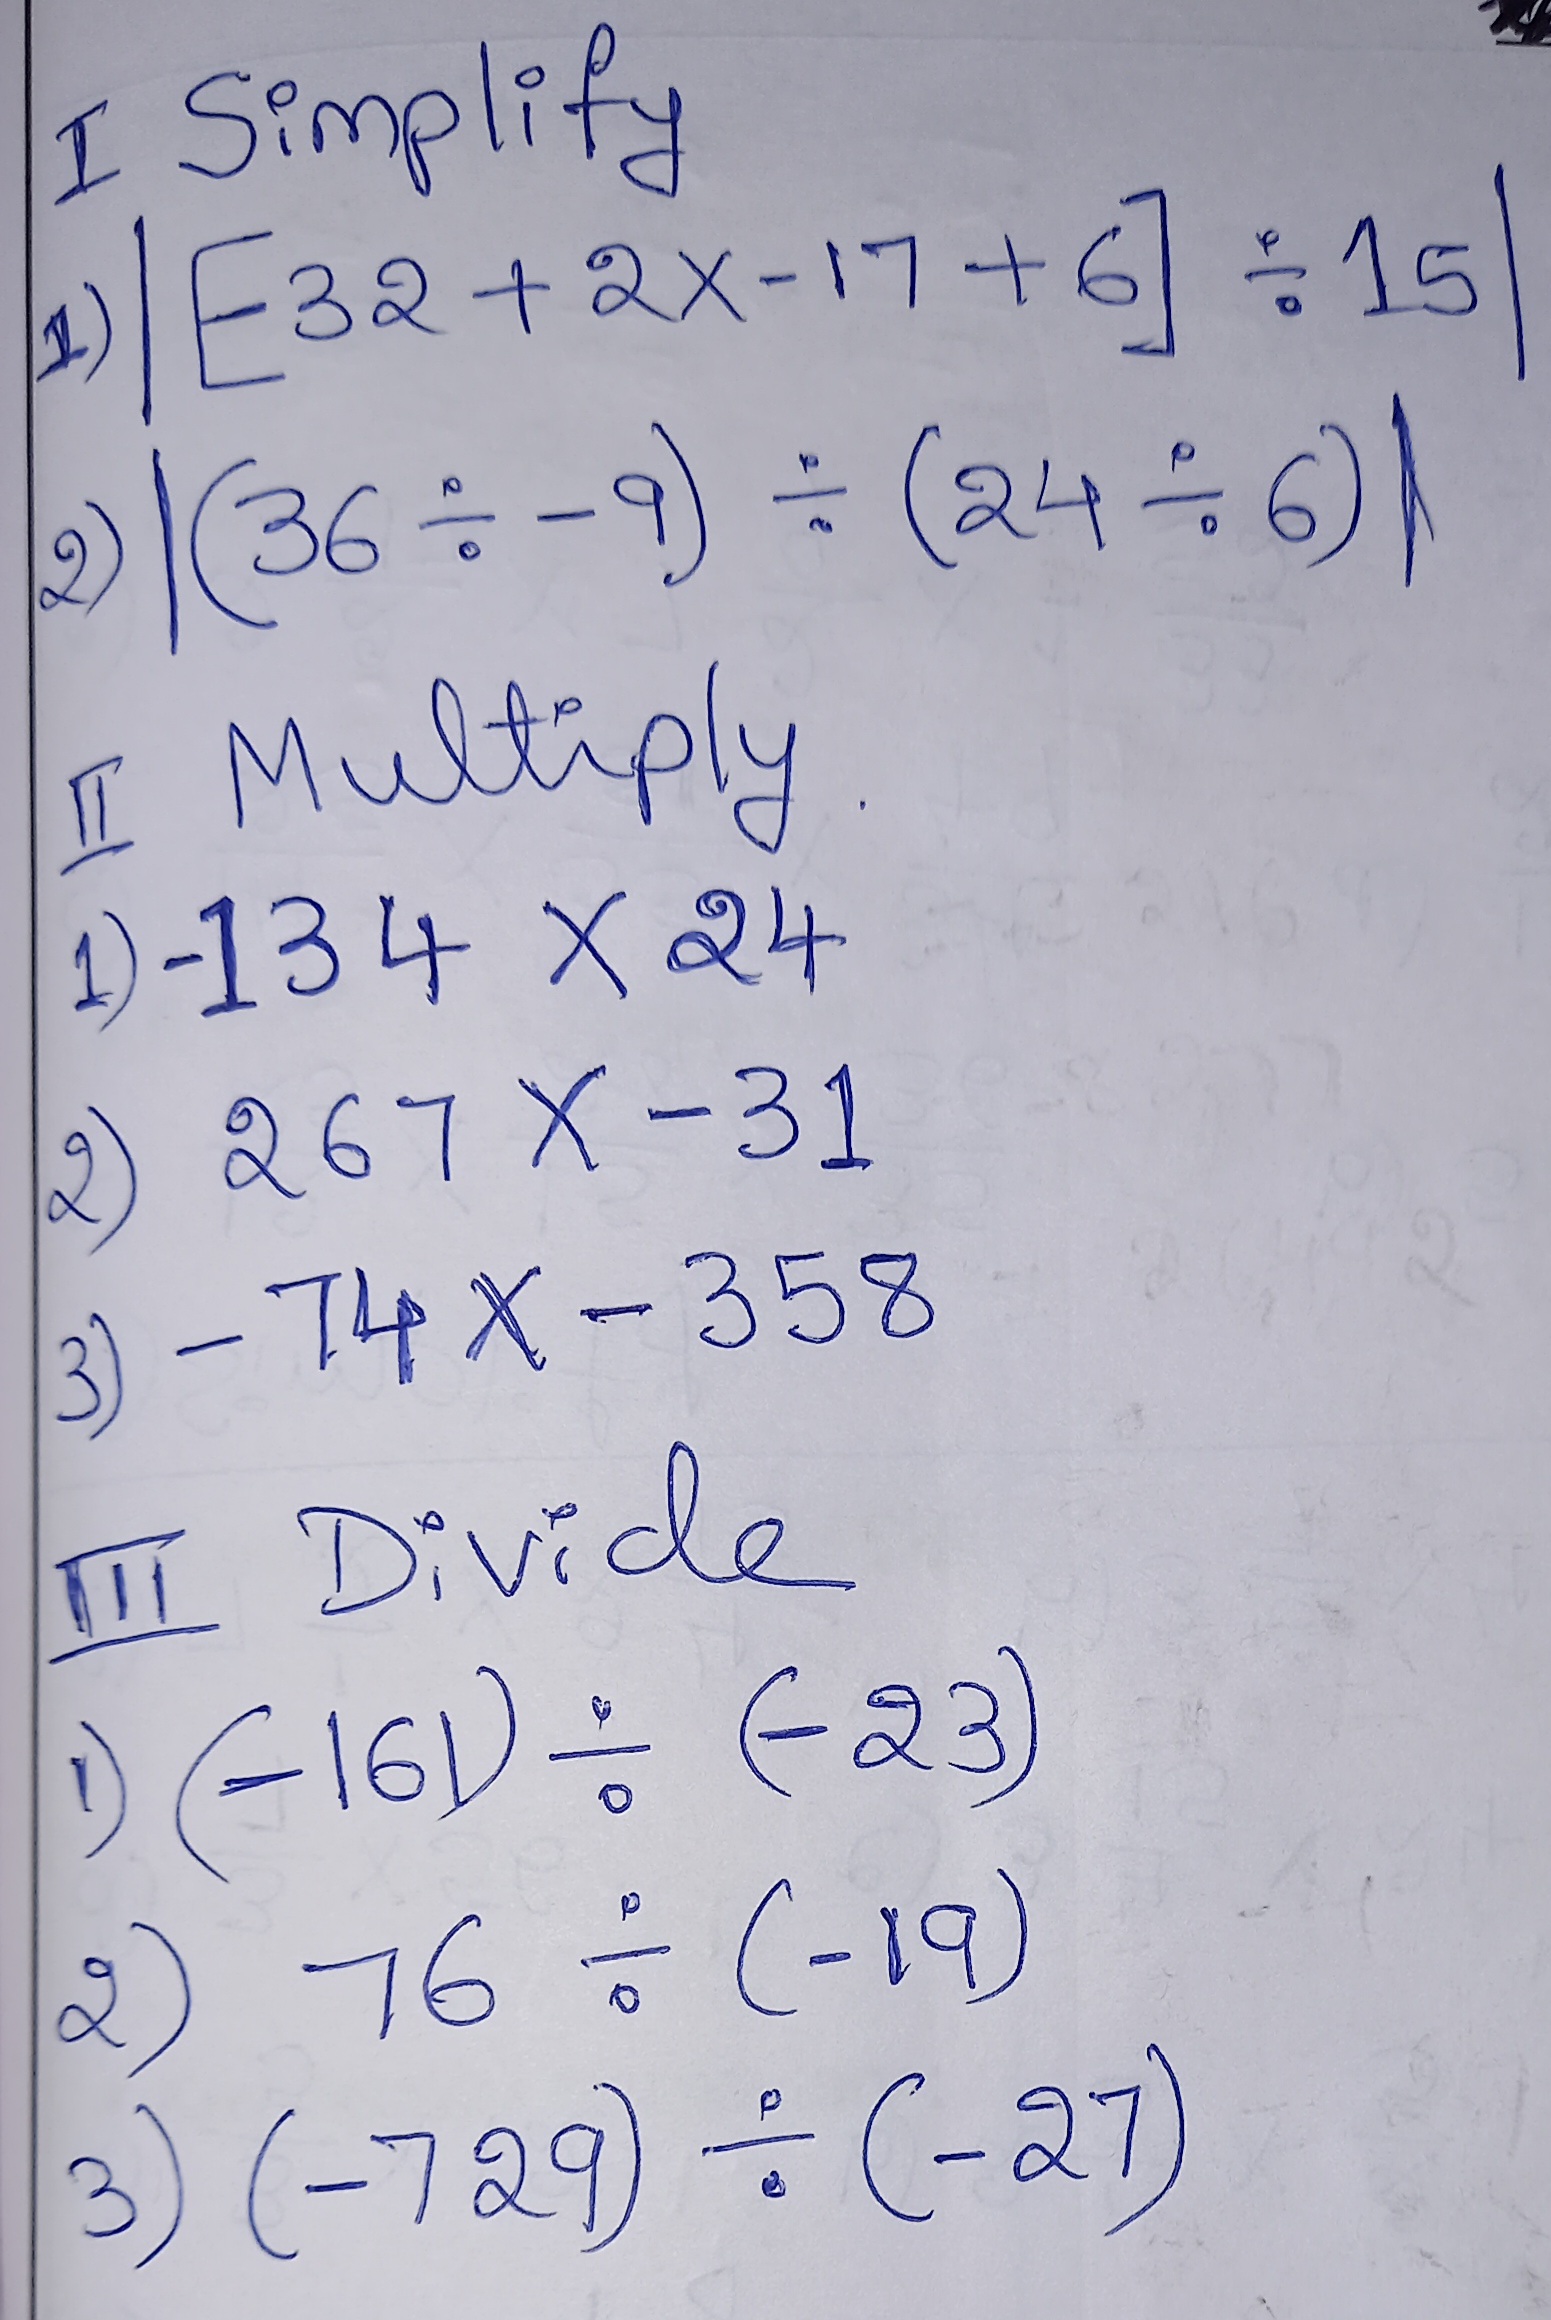 I Simplify
1) |[-32 + 2x-17 + 6] ÷ 15|
2) |(36 ÷ -9) ÷ (24 ÷ 6)|
II Multiply.
1) -134 X 24
2) 267 X -31
3) -74 X -358
III Divide
1) (-161) ÷ (-23)
2) 76 ÷ (-19)
3) (-729) ÷ (-27)